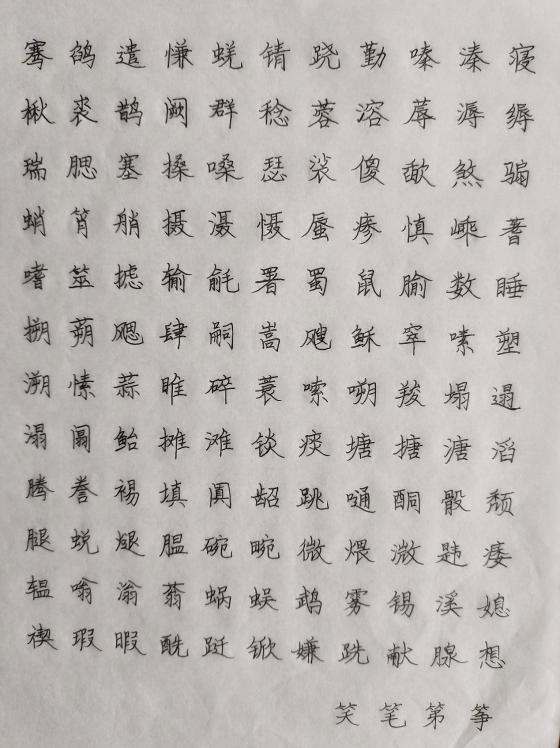 骞 鹆 遣 慊 蜣 锖 跷 勤 嗪 溱 寝
楸 裘 鹊 阙 群 稔 蓉 溶 蓐 溽 缛
瑞 腮 塞 搡 嗓 瑟 裟 傻 歃 煞 骟
蛸 筲 艄 摄 滠 慑 蜃 瘆 慎 嵊 蓍
嗜 筮 摅 输 毹 署 蜀 鼠 腧 数 睡
搠 蒴 飔 肆 嗣 嵩 飕 稣 窣 嗉 塑
溯 愫 蒜 睢 碎 蓑 嗦 嗍 羧 塌 遢
溻 阘 鲐 摊 滩 锬 痰 塘 搪 溏 滔
腾 誊 裼 填 阗 龆 跳 嗵 酮 骰 颓
腿 蜕 煺 腽 碗 畹 微 煨 溦 韪 痿
韫 嗡 滃 蓊 蜗 蜈 鹉 雾 锡 溪 媳
禊 瑕 暇 酰 跹 锨 嫌 跣 献 腺 想
笑 笔 第 筝